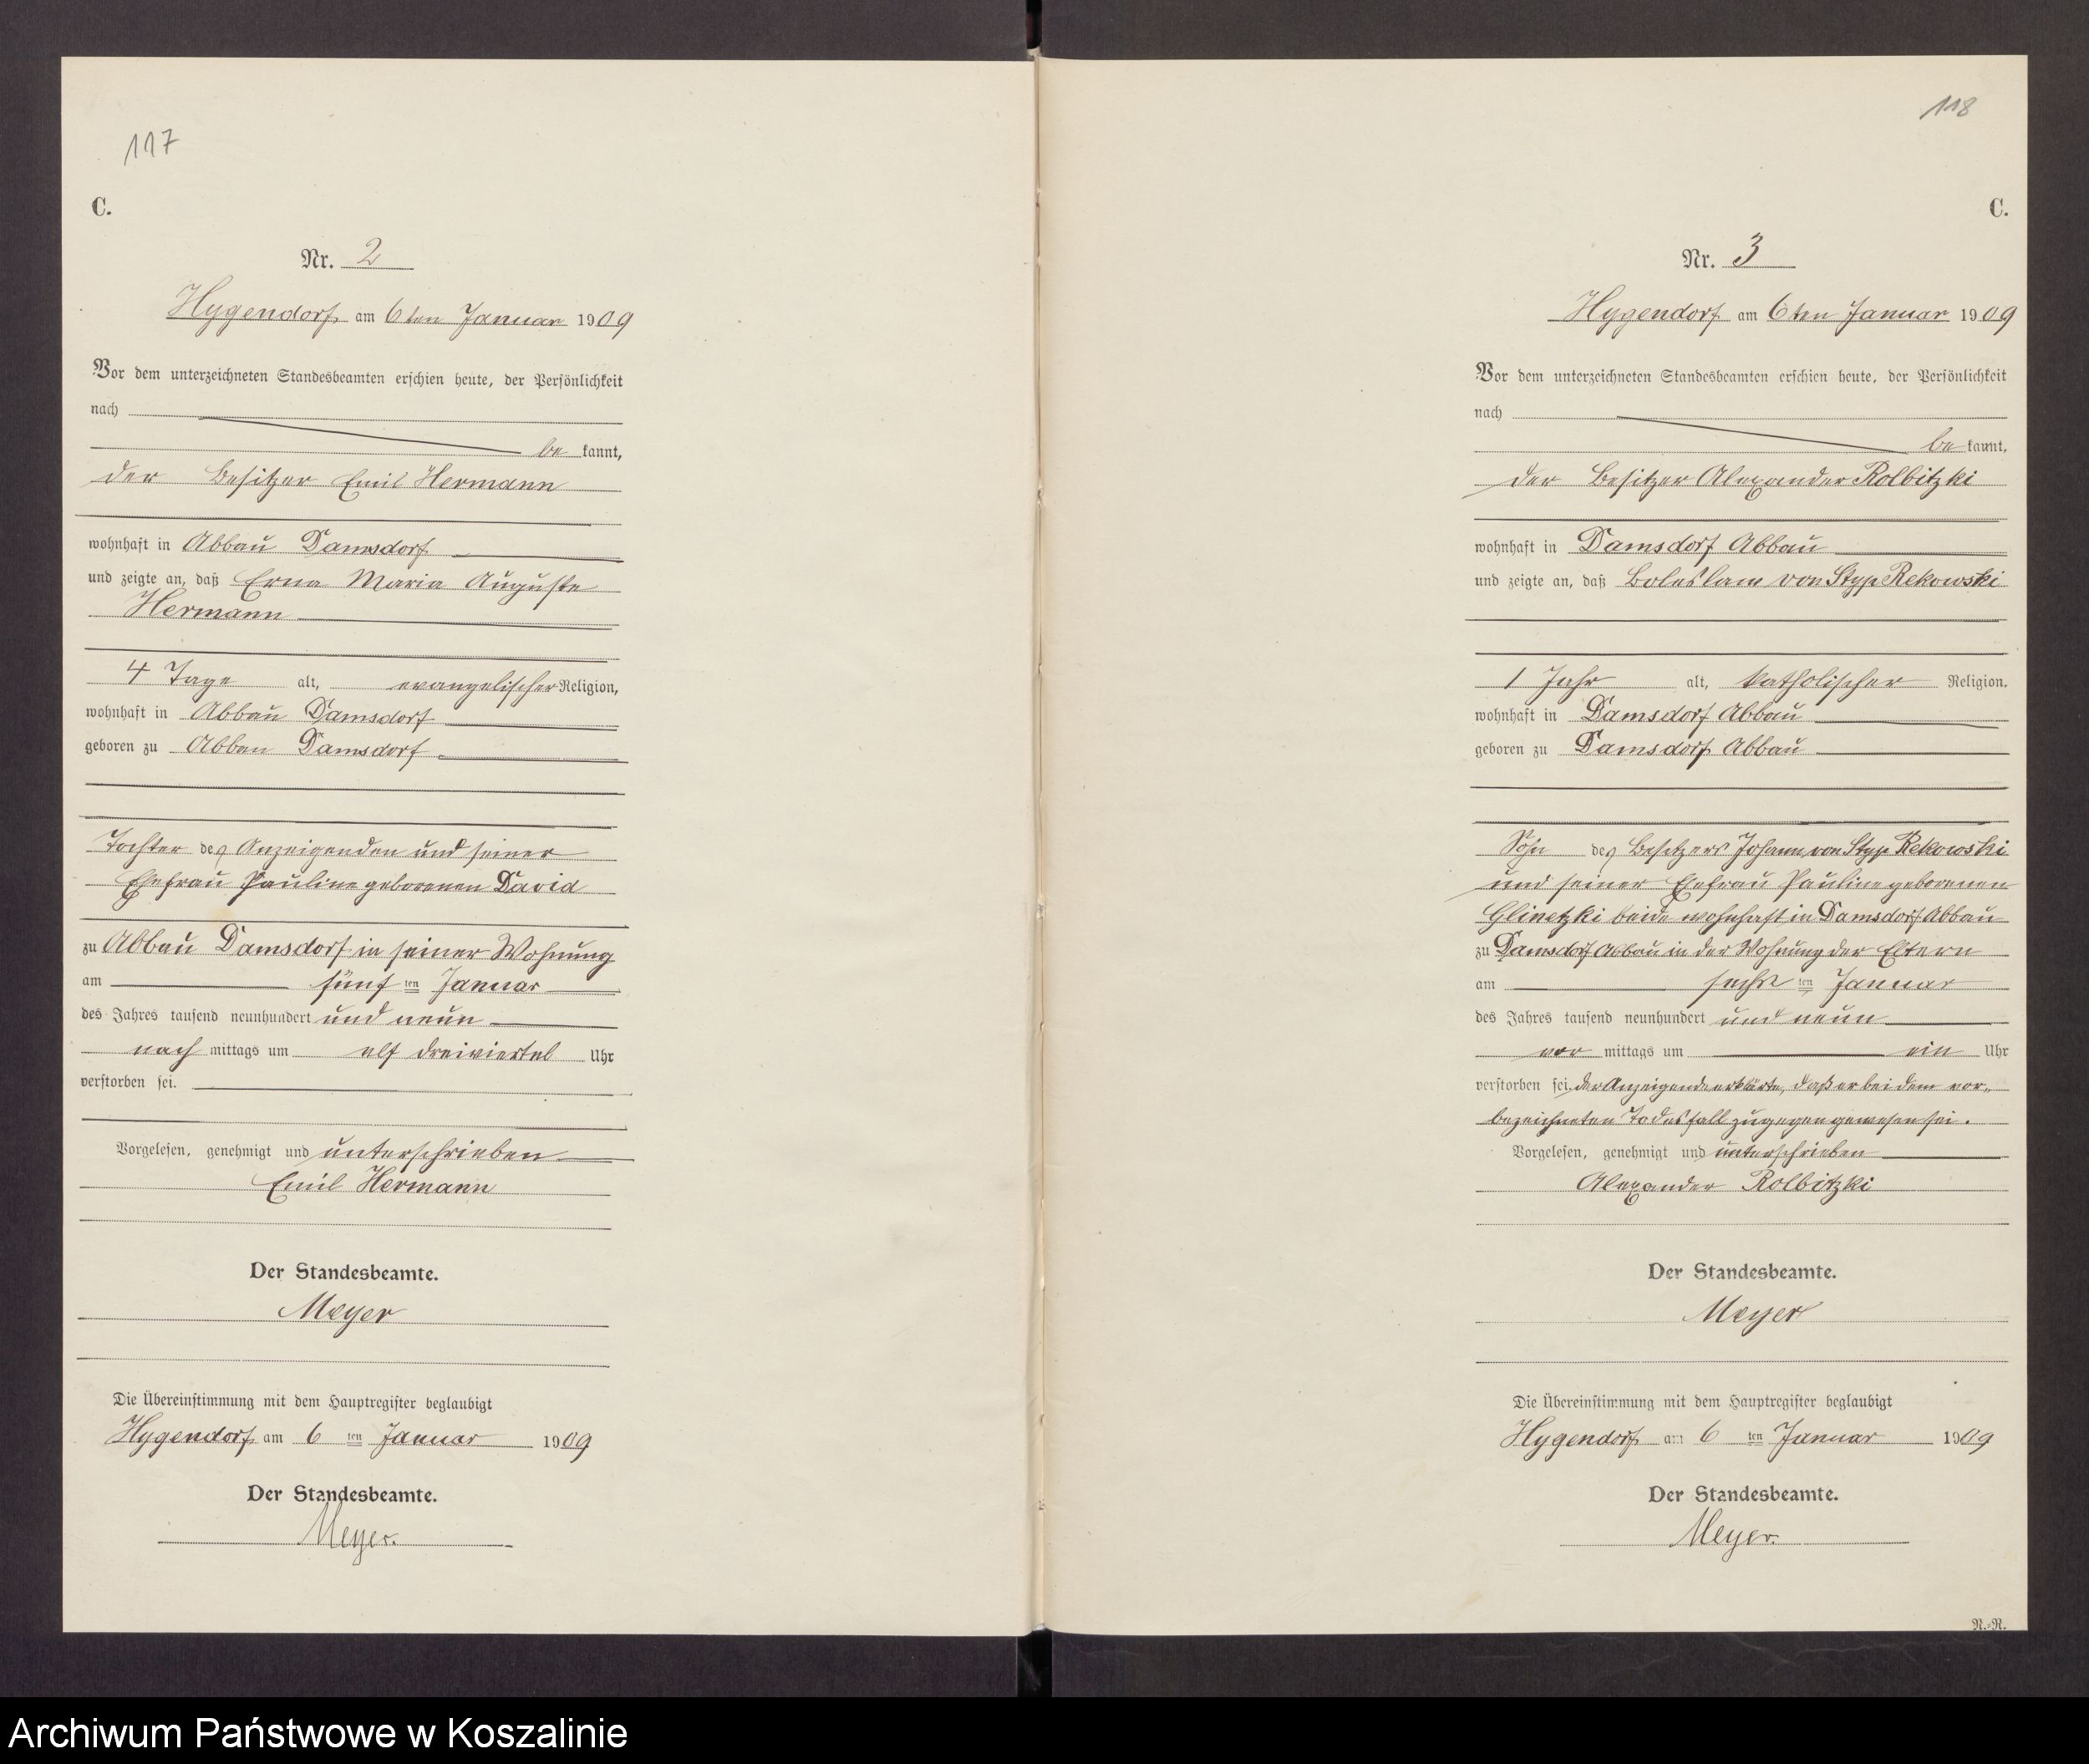 117
C.
Nr. 2
Hygendorf am 6ten Januar 1909
Vor dem unterzeichneten Standesbeamten erschien heute, der Persönlichkeit
nach
be kannt,
der Besitzer Emil Hermann
wohnhaft in Abbau Damsdorf
und zeigte an, daß Erna Maria Auguste
Hermann
4 Tage alt, evangelischer Religion,
wohnhaft in Abbau Damsdorf
geboren zu Abbau Damsdorf
Tochter des Anzeigenden und seiner
Ehefrau Pauline geborenen David
zu Abbau Damsdorf in seiner Wohnung
am fünf ten Januar
des Jahres tausend neunhundert und neun
nach mittags um elf dreiviertel Uhr
verstorben sei.
Vorgelesen, genehmigt und unterschrieben
Emil Hermann
Der Standesbeamte.
Meyer
Die Übereinstimmung mit dem Hauptregister beglaubigt
Hygendorf am 6 ten Januar 1909
Der Standesbeamte.
Meyer.
118
C.
Nr. 3
Hygendorf am 6ten Januar 1909
Vor dem unterzeichneten Standesbeamten erschien heute, der Persönlichkeit
nach
be kannt,
der Besitzer Alexander Rolbitzki
wohnhaft in Damsdorf Abbau
und zeigte an, daß Boleslaw von Styp Rekowski
1 Jahr alt, katholischer Religion.
wohnhaft in Damsdorf Abbau
geboren zu Damsdorf Abbau
Sohn des Besitzers Johann von Styp Rekowski
und seiner Ehefrau Pauline geborenen
Glinetzki beide wohnhaft in Damsdorf Abbau
zu Damsdorf Abbau in der Wohnung der Eltern
am sechs ten Januar
des Jahres tausend neunhundert und neun
vor mittags um ein Uhr
verstorben sei, der Anzeigende erklärte, daß er bei dem vor-
bezeichneten Todesfall zugegen gewesen sei.
Vorgelesen, genehmigt und unterschrieben
Alexander Rolbitzki
Der Standesbeamte.
Meyer
Die Übereinstimmung mit dem Hauptregister beglaubigt
Hygendorf am 6 ten Januar 1909
Der Standesbeamte.
Meyer.
N.-N.
Archiwum Państwowe w Koszalinie